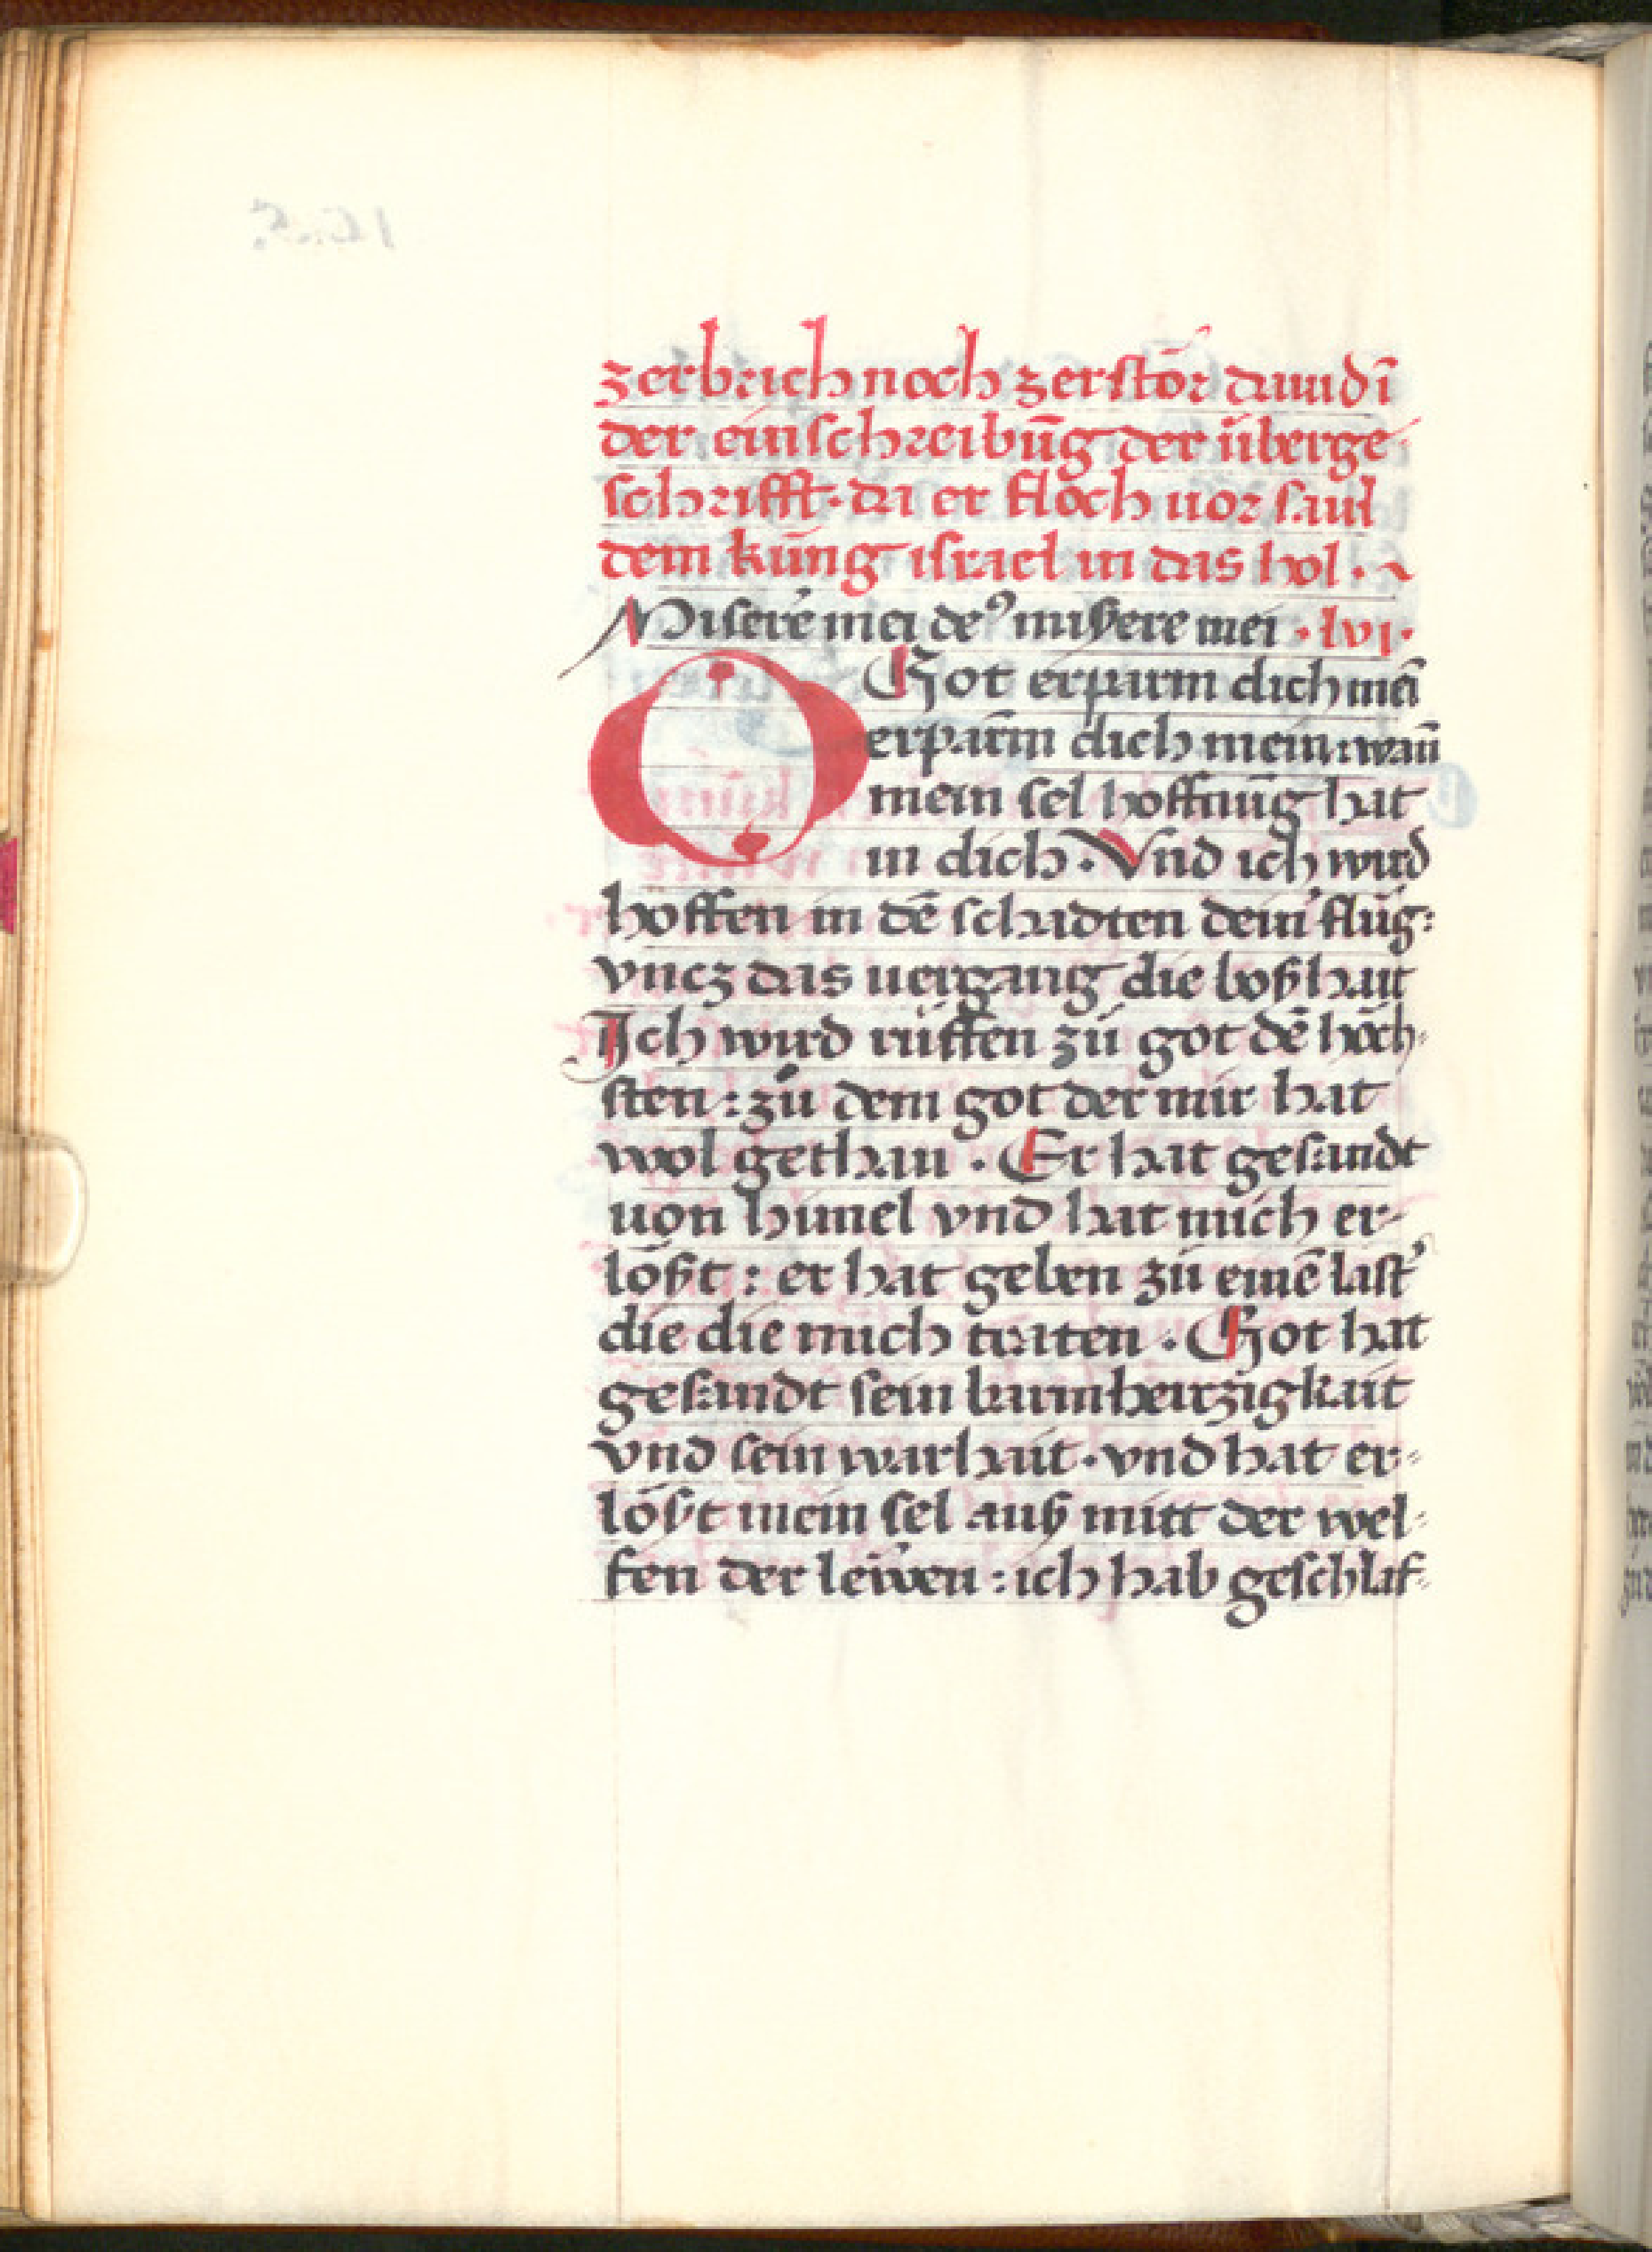 zerbrich noch zerstör dauid ī
der einschreibūg der überge-
schrifft · da er floch uor saul
dem kūng israel in das hol ·
Miserēre mei deꝰ misere mei · lvi ·
O Got erparm dich mei̅
erparm dich mein wan̅
mein sel hoffnūg hat
in dich · Vnd ich wird
hoffen in dē schadten dein' flüg:
vncz das uergang die boßhait
Ich wird rüffen zů got dē höch-
sten : zů dem got der mir hat
wol gethan · Er hat gesandt
uon himel vnd hat mich er-
lößt : er hat geben zů einē last'
die die mich traten · Got hat
gesandt sein barmhertzigkait
vnd sein warhait · vnd hat er-
lößt mein sel auß mitt der wel-
fen der leẅen : ich hab geschlaf-